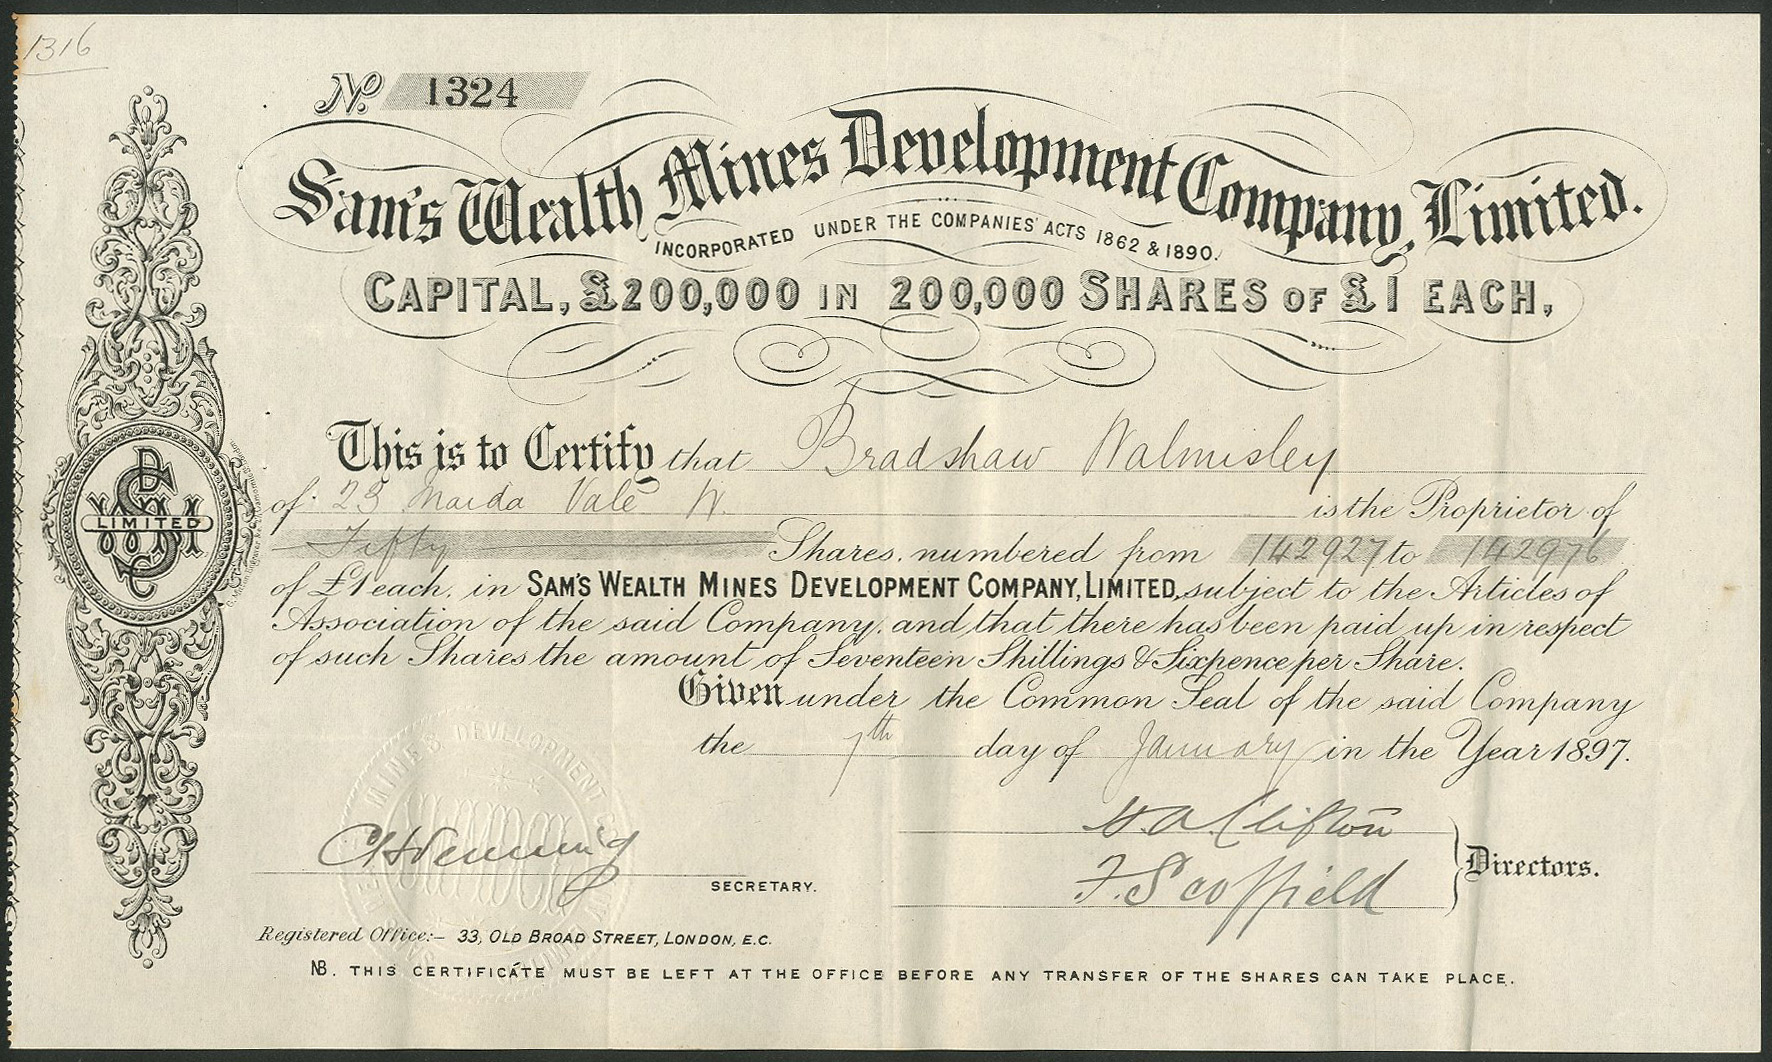 1316
No. 1324
Sam's Wealth Mines Development Company, Limited.
INCORPORATED UNDER THE COMPANIES' ACTS 1862 & 1890.
CAPITAL, £200,000 IN 200,000 SHARES OF £1 EACH,
This is to Certify that Bradshaw Walmisley
of 23 Maida Vale W. is the Proprietor of
Fifty Shares, numbered from 142927 to 142976
of £1 each, in SAM'S WEALTH MINES DEVELOPMENT COMPANY, LIMITED, subject to the Articles of
Association of the said Company, and that there has been paid up in respect
of such Shares the amount of Seventeen Shillings & Sixpence per Share.
Given under the Common Seal of the said Company
the 7th day of January in the Year 1897.
SWMDC
LIMITED
H. A. Clifton
F. Scoffield
Directors.
SECRETARY.
Registered Office:- 33, OLD BROAD STREET, LONDON, E.C.
NB. THIS CERTIFICATE MUST BE LEFT AT THE OFFICE BEFORE ANY TRANSFER OF THE SHARES CAN TAKE PLACE.
MINES DEVELOPMENT